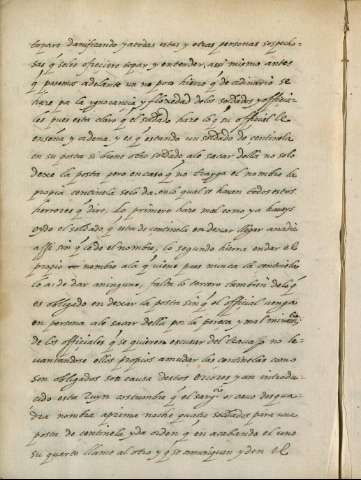 topare damificando y atodas estas y otras personas sospecho-
sas q̃ seles ofreciere topar y entender, assi mismo antes
q̃ pasemos adelante un no poco hierro q̃ de ordinario se
haze pa la ygnorancia y floxedad delos soldados y offiçia-
les pues esta claro q̃ el soldado hara lo q̃ su official le
enseña y ordena, y es q̃ estando un soldado de centinela
en su posta si biene otro soldado ale sacar della no solo
dexa la posta pero en caso q̃ no trayga el nombre la
propia centinela se lo da, en lo qual se hazen todos estos
herrores q̃ dire, lo primero haze mal como ya haueys
oydo el soldado q̃ esta de centinela en dexar llegar a nadie
assi sin q̃ le de el nombre, lo segundo hierra en dar el
propio nombre al q̃ viene pues nunca la centinela
lo a de dar a ninguno, falta lo tercero tambien de lo q̃
es obligado en dexar la posta sin q̃ el official venga
en persona ale sacar della por la pereza y mal
de los officiales q̃ se quieren escusar del trauajo no le-
uantandose ellos propios a mudar las centinelas como
son obligados son causa destos errores y an introdu-
cido esta ruyn costumbre q̃ el sarjto o cauo desqua-
dra nombra a prima noche quatro soldados para una
posta de centinela y da orden q̃ en acabando el uno
su quarto llame al otro y q̃ se muniquen y den el